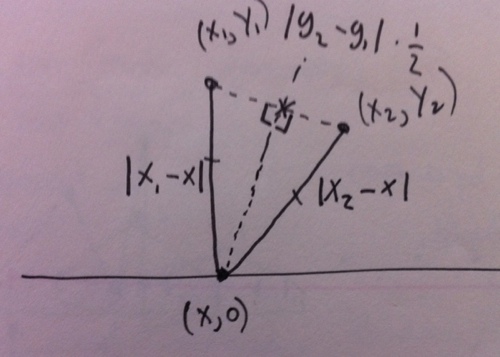 (x₁, y₁) |y₂ - y₁| · 1/2
(x₂, y₂)
|x₁ - x|
|x₂ - x|
(x, 0)